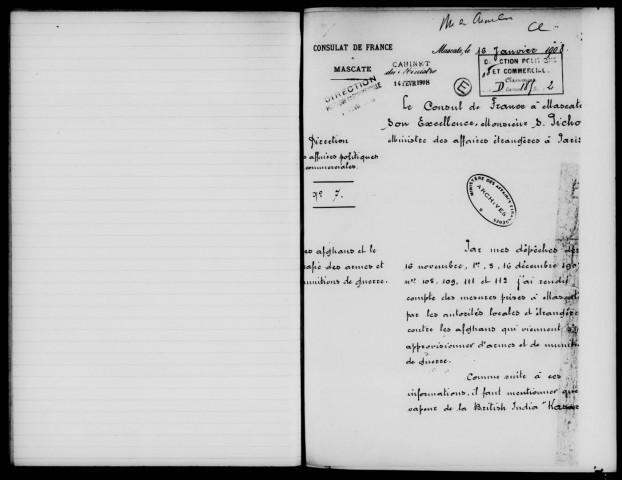 Cl.
CONSULAT DE FRANCE
À
MASCATE
Mascate, le 16 Janvier 1908.
CABINET
du Ministre
14 FEVR 1908
DIRECTION
DIRECTION POLIT
ET COMMERCIALE
E
Le Consul de France à Mascate
Son Excellence, Monsieur S. Picho
Ministre des affaires étrangères à Paris
Direction
s affaires politiques
commerciales.
nº 7.
MINISTÈRE DES AFFAIRES ETRANGÈRES
ARCHIVES
es afghans et le
rafic des armes et
munitions de guerre.
Par mes dépêches des
16 novembre, 1er, 3, 16 décembre 190
nos 108, 109, 111 et 112 j'ai rendu
compte des mesures prises à Mascate
par les autorités locales et étrangère
contre les afghans qui viennent s'y
approvisionner d'armes et de muniti
de guerre.
Comme suite à ces
informations, il faut mentionner que
vapeur de la British India "